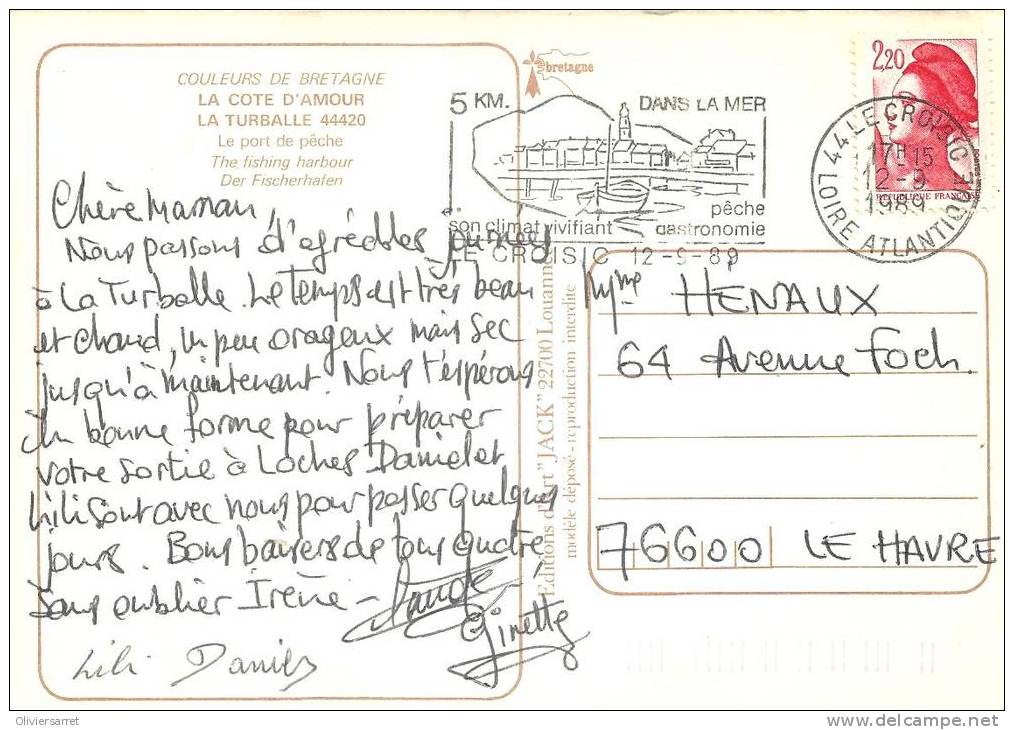 COULEURS DE BRETAGNE
LA COTE D'AMOUR
LA TURBALLE 44420
Le port de pêche
The fishing harbour
Der Fischerhafen
Chère Maman,
Nous passons d'agréables journées
à La Turballe. Le temps est très beau
et chaud, un peu orageux mais sec
jusqu'à maintenant. Nous t'espérons
en bonne forme pour préparer
votre sortie à Loches Daniel et
Lili sont avec nous pour passer quelques
jours. Bons baisers de tous quatre
sans oublier Irène -
Ginette
Lili Daniel
bretagne
5 KM. DANS LA MER
pêche
son climat vivifiant gastronomie
LE CROISIC 12-9-89
2,20
REPUBLIQUE FRANÇAISE
44 LE CROISIC
17H-15
12-9
1989
LOIRE ATLANTIQUE
Editions d'art "JACK" 22700 Louannec
modèle déposé - reproduction interdite
Mme HENAUX
64 Avenue Foch.
76600 LE HAVRE
Oliviersarret
delcampe.net